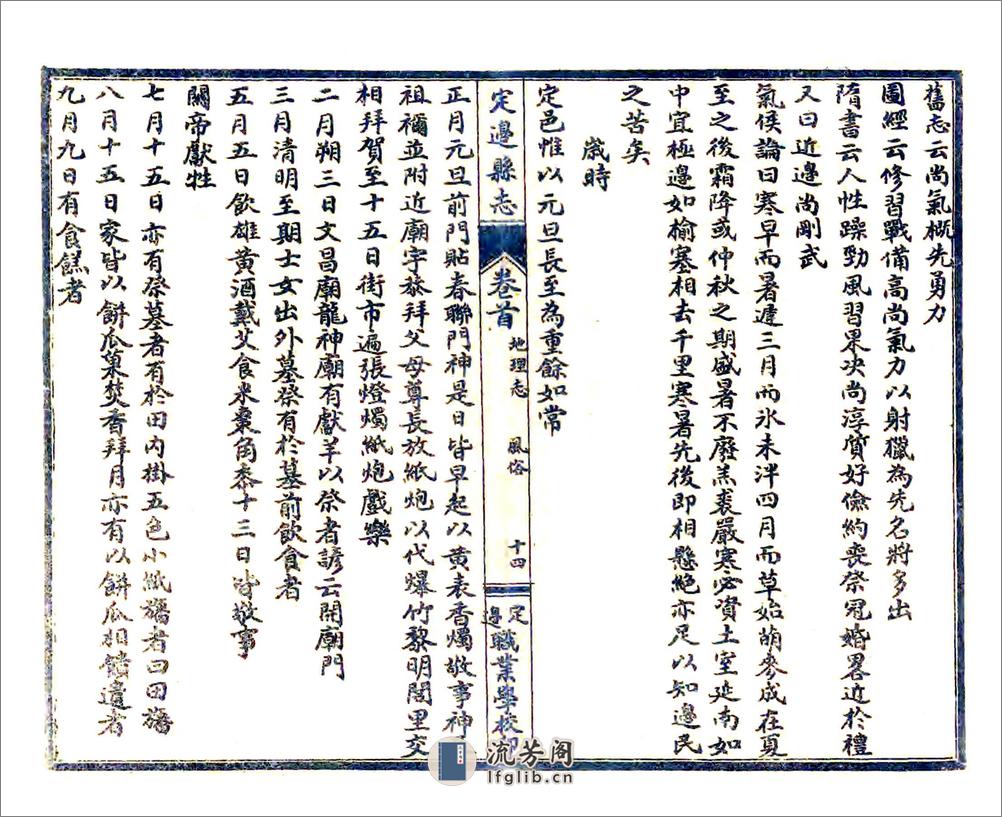 舊志云尚氣概先勇力
圖經云修習戰備高尚氣力以射獵為先名將多出
隋書云人性躁勁風習果决尚淳質好儉約喪祭冠婚畧近於禮
又曰近邊尚剛武
氣候論曰寒早而暑遲三月而氷未泮四月而草始萌麥成在夏
至之後霜降或仲秋之期盛暑不廢羔裘嚴寒必資土室延南如
中宜極邊如榆塞相去千里寒暑先後即相懸絕亦足以知邊民
之苦矣
歲時
定邑惟以元旦長至為重餘如常
定邊縣志
卷首
地理志
風俗
十四
定邊職業學校印
正月元旦前門貼春聯門神是日皆早起以黃表香燭敬事神
祖禰並附近廟宇旅拜父母尊長放紙炮以代爆竹黎明閭里交
相拜賀至十五日街市遍張燈燭紙炮戲樂
二月朔三日文昌廟龍神廟有獻羊以祭者諺云開廟門
三月清明至期士女出外墓祭有於墓前飲食者
五月五日飲雄黃酒戴艾食米棗角黍十三日皆敬事
關帝獻牲
七月十五日亦有祭墓者有於田內掛五色小紙旛者曰田旛
八月十五日家皆以餅瓜菓焚香拜月亦有以餅瓜相饋遺者
九月九日有食餻者
流芳阁
lfglib.cn